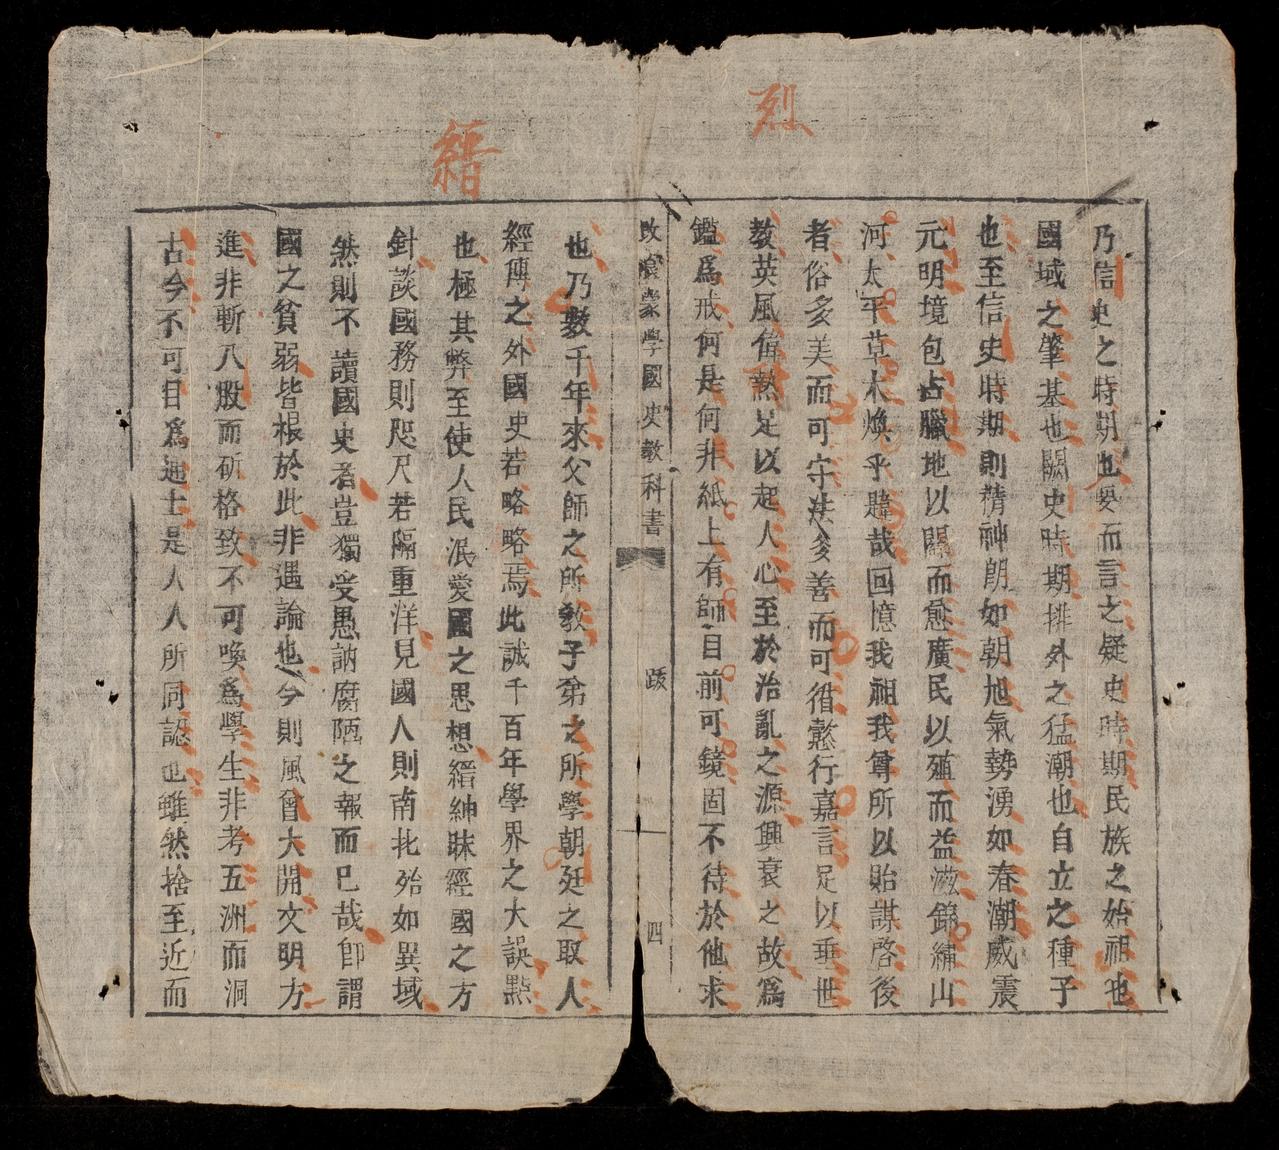 烈
縉
乃信史之時期也要而言之疑史時期民族之始祖也
國域之肇基也闕史時期排外之猛潮也自立之種子
也至信史時期則精神朗如朝旭氣勢湧如春潮威震
元明境包占臘地以闢而愈廣民以殖而益滋錦繡山
河太平草木煥乎韙哉回憶我祖我尊所以貽謀啓後
者俗多美而可守法多善而可循懿行嘉言足以垂世
教英風偉熱足以起人心至於治亂之源興衰之故為
鑑為戒何是何非紙上有師目前可鏡固不待於他求
改良蒙學國史教科書 跋 四
也乃數千年來父師之所教子弟之所學朝廷之取人
經傳之外國史若略略焉此誠千百年學界之大誤點
也極其弊至使人民泯愛國之思想縉紳昧經國之方
針談國務則咫尺若隔重洋見國人則南北殆如異域
然則不讀國史者豈獨受愚訥腐陋之報而已哉即謂
國之貧弱皆根於此非過論也今則風會大開文明方
進非斬八股而斫格致不可喚為學生非考五洲而洞
古今不可目為通士是人人所同認也雖然捨至近而